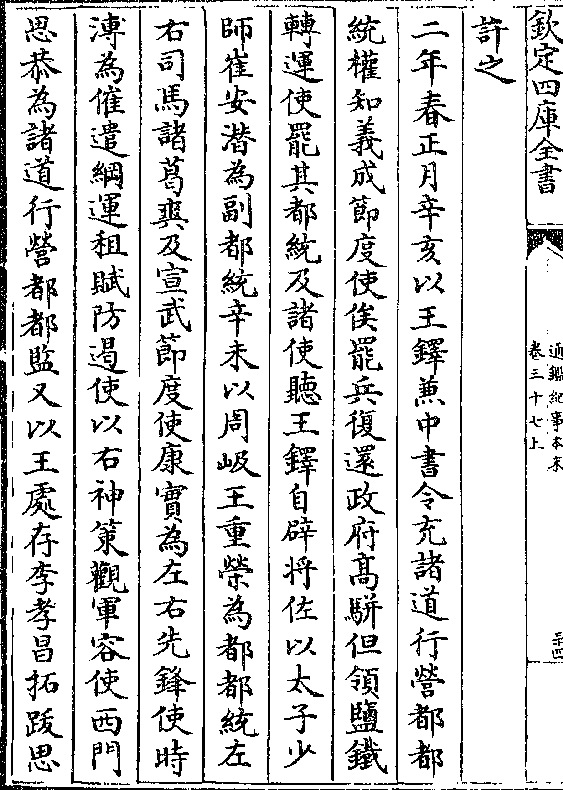 欽定四庫全書
通鑑紀事本末
卷三十七上
二十四
許之
二年春正月辛亥以王鐸兼中書令充諸道行營都都
統權知義成節度使俟罷兵復還政府髙駢但領鹽鐵
轉運使罷其都統及諸使聽王鐸自辟将佐以太子少
師崔安潛為副都統辛未以周岐王重榮為都都統左
右司馬諸葛爽及宣武節度使康實為左右先鋒使時
溥為催遣綱運租賦防遏使以右神策觀軍容使西門
思恭為諸道行營都都監又以王處存李孝昌拓跋思